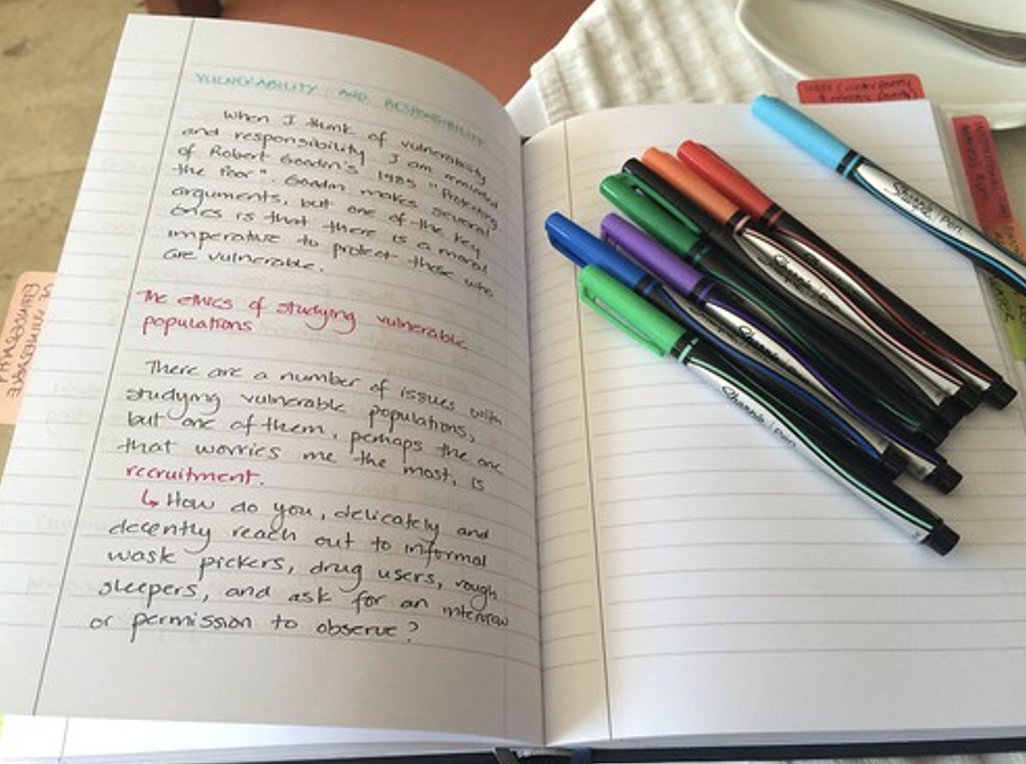 VULNERABILITY AND RESPONSIBILITY
When I think of vulnerability
and responsibility I am reminded
of Robert Goodin's 1985 "Protecting
the Poor". Goodin makes several
arguments, but one of the key
ones is that there is a moral
imperative to protect those who
are vulnerable.
The ethics of studying vulnerable
populations
There are a number of issues with
studying vulnerable populations,
but one of them, perhaps the one
that worries me the most, is
recruitment.
↳ How do you, delicately and
decently reach out to informal
waste pickers, drug users, rough
sleepers, and ask for an interview
or permission to observe?
Sharpie Pen
Sharpie Pen
Sharpie
Sharpie
Sharpie Pen